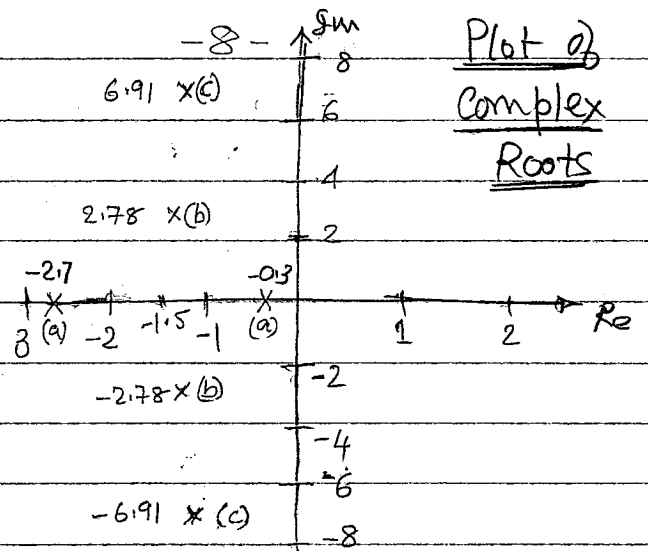 -8-
Im
Plot of
Complex
Roots
8
6.91 x(c)
6
4
2.78 x(b)
2
-2.7
-0.3
3 (a) -2 -1.5 -1 (a) 1 2 Re
-2
-2.78 x (b)
-4
-6
-6.91 x (c)
-8